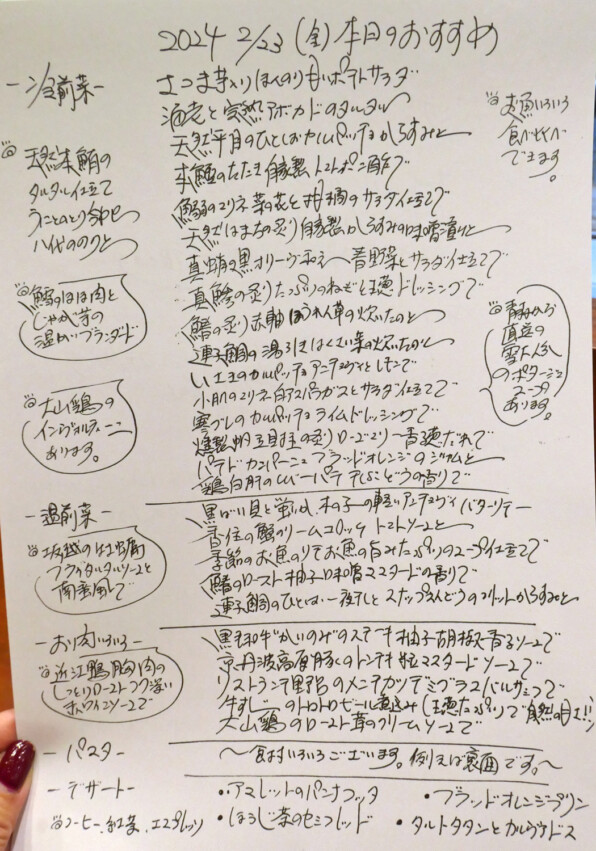 2024 2/23 (金) 本日のおすすめ
-冷前菜-
さつま芋入りほんのり甘いポテトサラダ
海老と完熟アボカドのタルタル
天然平目のひとしおカルパッチョ からすみと
本鰹のたたき 自家製トマトポン酢で
鰯のマリネ 菜の花と柑橘のサラダ仕立てで
天然はまちの炙り 自家製からすみの味噌漬けと
真蛸の黒オリーヴ和え 〜香野菜とサラダ仕立てで
真鯵の炙り たっぷりのねぎと玉葱ドレッシングで
鰆の炙り 赤軸ほうれん草の炊いたのと
連子鯛の湯引き はくさい菜の炊いたのと
小肌のマリネ 白アスパラガスとサラダ仕立てで
寒ブレのカルパッチョ ライムドレッシングで
パテドカンパーニュ ブラッドオレンジのジャムと
鶏白肝のレバーパテ 干しぶどうの香りで
お魚いろいろ
食べ比べ
できます。
天然本鮪の
タルタル仕立て
うにとのとり合わせ
八代ののりと
鱈のほほ肉と
じゃが芋の
温かいブランダード
大山鶏の
インヴォルティーニ
あります。
直送の
雪下人参
のポタージュ
スープ
あります。
-温前菜-
香住の蟹クリームコロッケ トマトソースと
季節のお魚のソテー お魚の旨みたっぷりのスープ仕立てで
鰆のロースト 柚子味噌マスタードの香りで
連子鯛のひとしお一夜干しと スナップえんどうのフリット からすみと
坂越の牡蠣
フライタルタルソースと
南蛮風で
-お肉いろいろ-
黒毛和牛かいのみのステーキ 柚子胡椒香るソースで
京丹波高原豚のトンテキ 粒マスタードソースで
リストランテ野呂のメンチカツ デミグラスバルサミコで
牛すじのトロトロビール煮込み (玉葱たっぷりで自然の甘さ!!)
大山鶏のロースト 茸のクリームソースで
近江鴨胸肉の
しっとりロースト コク深い
赤ワインソースで
-パスタ-
〜食材いろいろございます。例えば裏面です。〜
-デザート-
・アマレットのパンナコッタ
・ブラッドオレンジプリン
コーヒー、紅茶、エスプレッソ
・ほうじ茶のセミフレッド
・タルトタタンとカルヴァドス